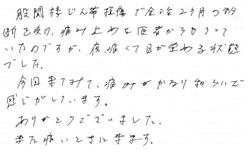 股関節じん帯損傷で全治2ヶ月の診
断を受け、痛み止めを医者からもらって
いたのですが、夜、痛くて目が覚める状態
でした。
今回来てみて、痛みがかなり和らいで
感じがしています。
ありがとうございました。
また痛いときに来ます。